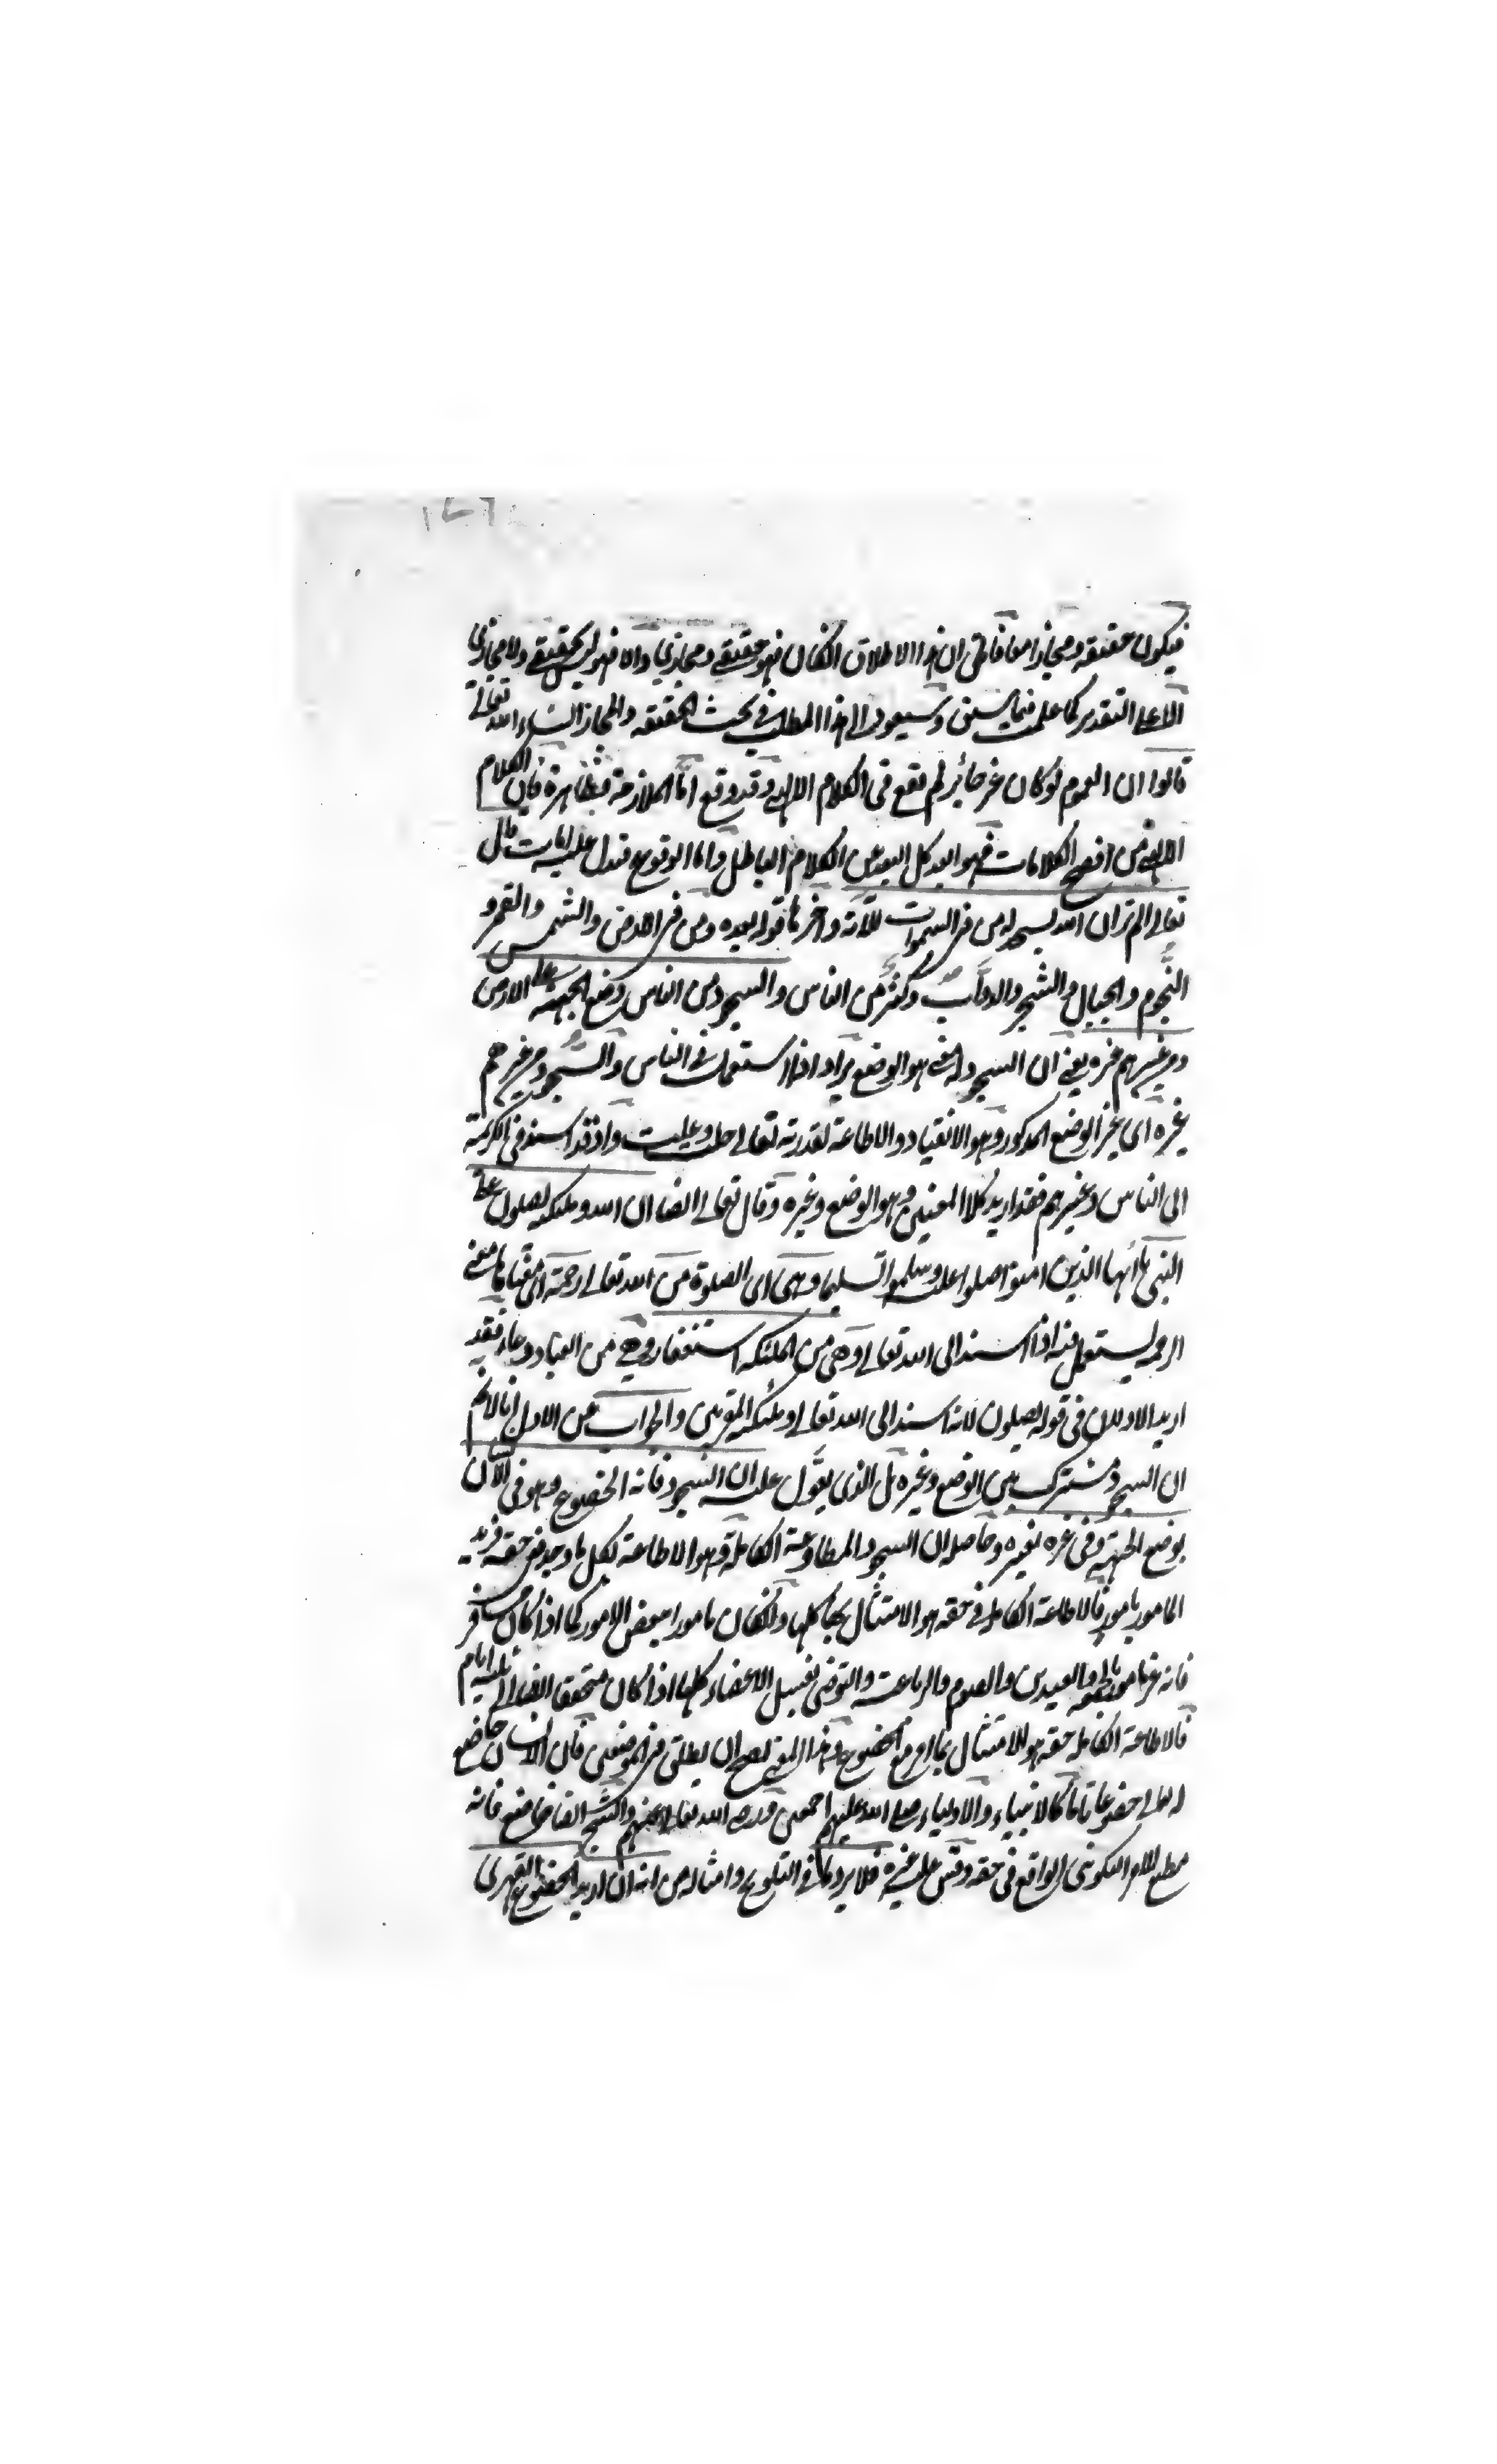 فيكون حقيقة ومجازا معا فافهم ان هذا الاطلاق انكان فهو حقيقي ومجازي والا فهو ليس بحقيقي ولا مجازي
الا على التقدير كما علمت فيما سبق وسيعود الى هذا المطلب في بحث الحقيقة والمجاز انشاء الله تعالى
قالوا ان العموم لو كان غير جائز لم تقع في الكلام الالهي وقد وقع اما الملازمة فظاهرة فان الكلام
الالهي من افصح الكلامات فهو ابعد كل البعد عن الكلام الباطل واما الوقوع فتدل عليه ايات قال
تعالى الم تر ان الله يسجد له من في السموات للآية واخرها قوله بعده ومن في الارض والشمس والقمر و
النجوم والجبال والشجر والدواب وكثير من الناس والسجود من الناس وضع الجبهة على الارض
ومن غيرهم غيره يعني ان السجود له معنى هو الوضع يراد اذا استعملت في الناس والسجود من غيرهم
غيره اي غير الوضع المذكور وهو الانقياد والاطاعة لقدرته تعالى جلت وعليت واذ قد اسند في الكريمة
الى الناس وغيرهم فقد اريد كلا المعنيين وهو الوضع وغيره وقال تعالى ايضا ان الله وملئكته يصلون على
النبي يا ايها الذين امنوا صلوا عليه وسلموا تسليما وهي اي الصلوة من الله تعالى رحمة اي معناها معنى
الرحمة يستعمل فيه اذا اسند الى الله تعالى وهي من الملئكة استغفار وهي من العباد دعاء فقد
اريد الاولان في قوله يصلون لانه اسند الى الله تعالى وملئكته المقربين والجواب عن الاول انا لا نم
ان السجود مشترك بين الوضع وغيره بل الذي يعول عليه ان السجود فانه الخضوع وهو في الانسان
بوضع الجبهة وفي غيره بغيره وحاصله ان السجود المطاوعة الكاملة وهو الاطاعة لكل ما وجد في حقه فزيد
المامور بامور فالاطاعة الكاملة في حقه هو الامتثال بها كلها ولو كان مامورا ببعض الامور كما اذا كان مسافر
فانه غير مامور بالجمعة والعيدين والصوم والرباعية والتوضي بغسل الاعضاء كلها اذا كان متحققا ايضا الى ثلثة ايام
فالاطاعة الكاملة حقه هو الامتثال بما امر مع الخضوع وهذا المعنى يصح ان يطلق في الموضعين فان الانسان خاضع
له تعالى خضوعا تاما كالانبياء والاولياء صلى الله عليهم اجمعين ورضي الله تعالى عنهم والشجر ايضا خاضع فانه
مطيع للامر التكويني الواقع في حقه وقس عليه غيره فلا يرد ما في التلويح وامثاله من انه ان اريد الخضوع القهري